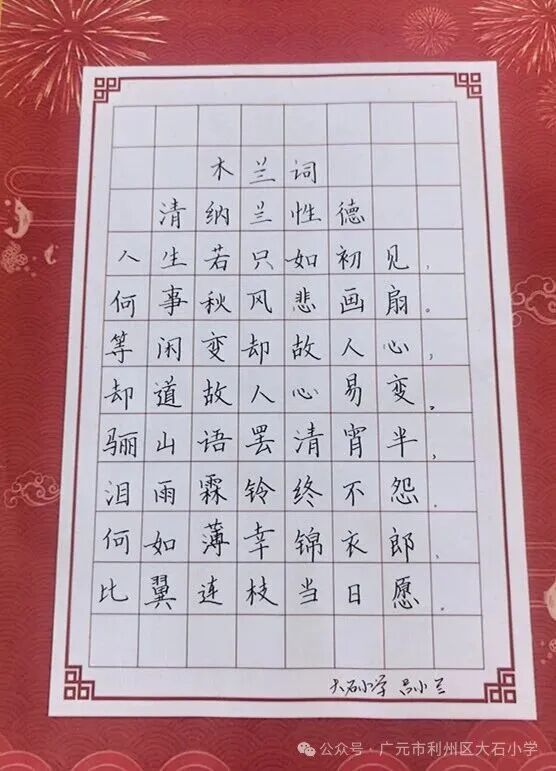 木兰词
清纳兰性德
人生若只如初见,
何事秋风悲画扇。
等闲变却故人心,
却道故人心易变。
骊山语罢清宵半,
泪雨霖铃终不怨.
何如薄幸锦衣郎,
比翼连枝当日愿.
大石小学 吕小兰
公众号·广元市利州区大石小学